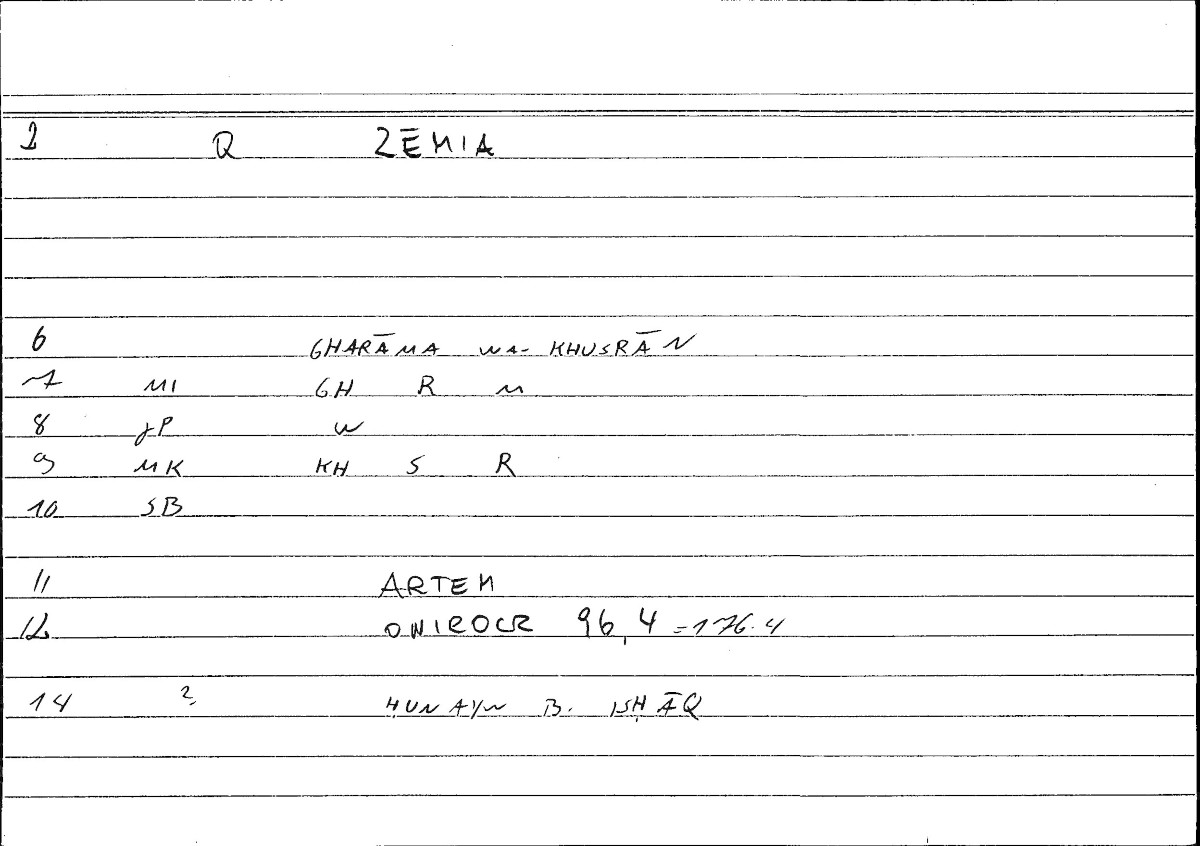 1 Q ZĒMIA
6 GHARĀMA WA- KHUSRĀN
7 MI GH R M
8 JP W
9 MK KH S R
10 SB
11 ARTEM
12 ONIROCR 96,4 =176.4
14 ? ḤUNAYN B. ISḤĀQ